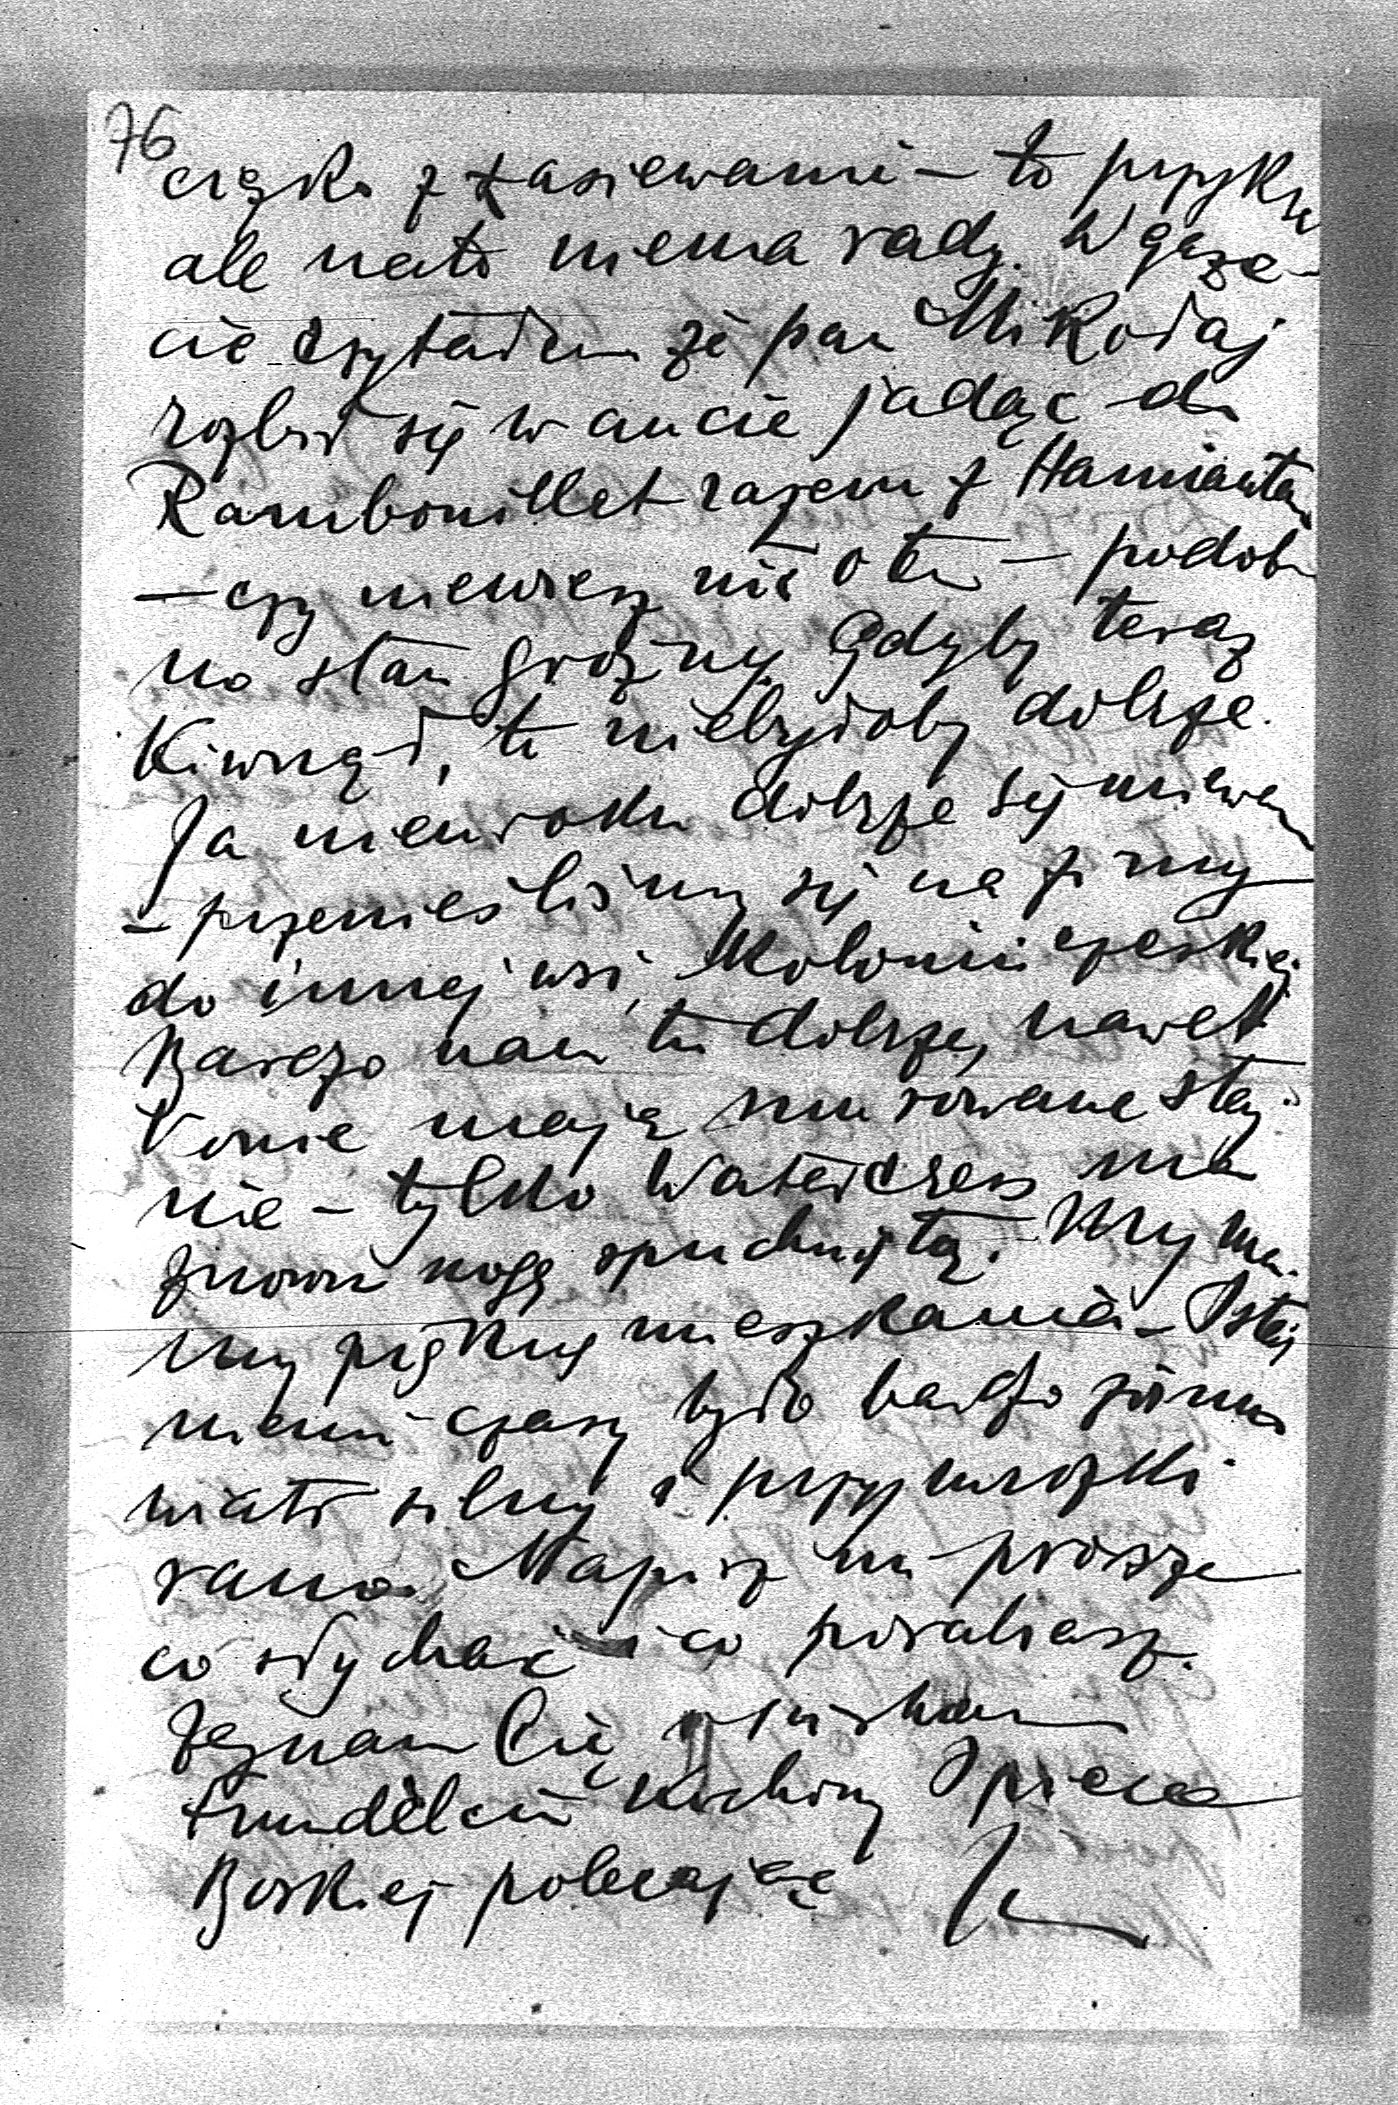 76
ciężko z zasiewami – to przykre
ale nato niema rady. W gaze-
cie czytałem że pan Mikołaj
rozbił się w aucie jadąc do
Rambouillet razem z
– czy niewiesz nic o tem – podob
no stan groźny. Gdyby teraz
Kiwnął, to niebyłoby dobrze.
Ja nieuroku dobrze się miewam
– przenieśliśmy się na zimę
do innej wsi, Kolonii czeskiej
Bardzo nam tu dobrze, nawet
Konie mają murowane staj-
nie – tylko ma
znowu nogę spuchniętą. My ma-
my piękne mieszkania – Osta
niemi czasy było bardzo zimno
wiatr silny i przymrozki
rano. Napisz mi proszę
co słychać i co porabiasz.
Żegnam Cię i ściskam
Opiece
Boskiej polecając